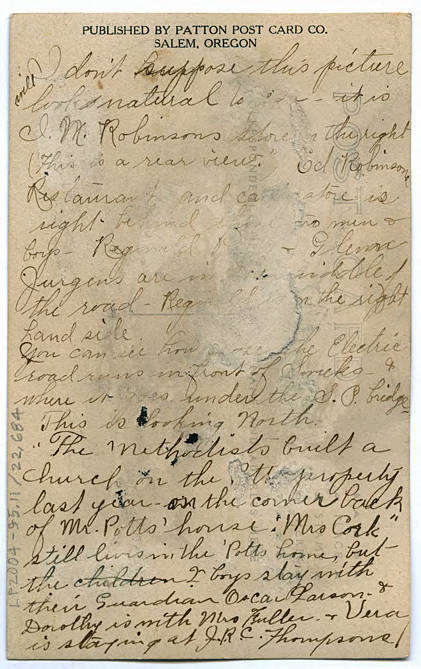 PUBLISHED BY PATTON POST CARD CO.
SALEM, OREGON
I don't suppose this picture
will look natural to - it is
J. M. Robinsons store on the right
(This is a rear view." Ed Robinsons
Restaurant and store is
right behind men &
boy - Reginald & Glenn
Jurgens are in middle of
the road - Reginald is on the right
hand side
You can see how the Electric
road runs in front of &
where it goes under the S. P. bridge
This is looking North.
"The Methodists built a
church on the Potts property
last year - on the corner back
of Mr. Potts' house. "Mrs Cork"
still lives in the Potts home, but
the children & boys stay with
their Guardian Oscar Larson. &
Dorothy is with Mrs Fuller. & Vera
is staying at J.R.C. Thompsons
LP2004-95.11/22,684
POST